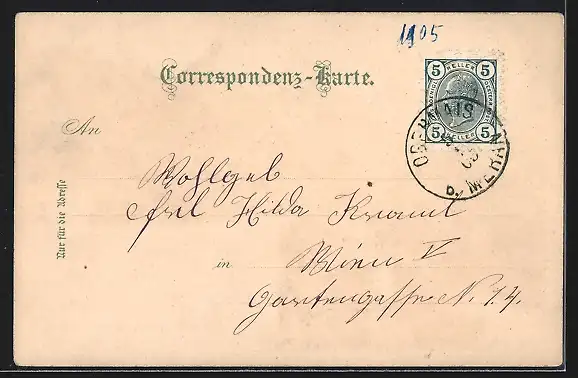 1905
Correspondenz-Karte.
5 HELLER 5
5 HELLER 5
OBERMAIS
b. MERAN
An
Wohlgeb
Frl Hilda Kraml
in Wien V
Gartengasse N. 14.
Nur für die Adresse